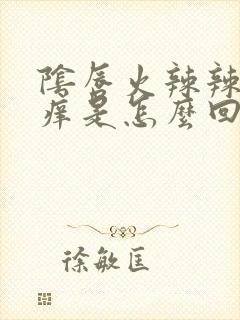 陰唇火辣辣
痒是怎麼回
徐敏匡